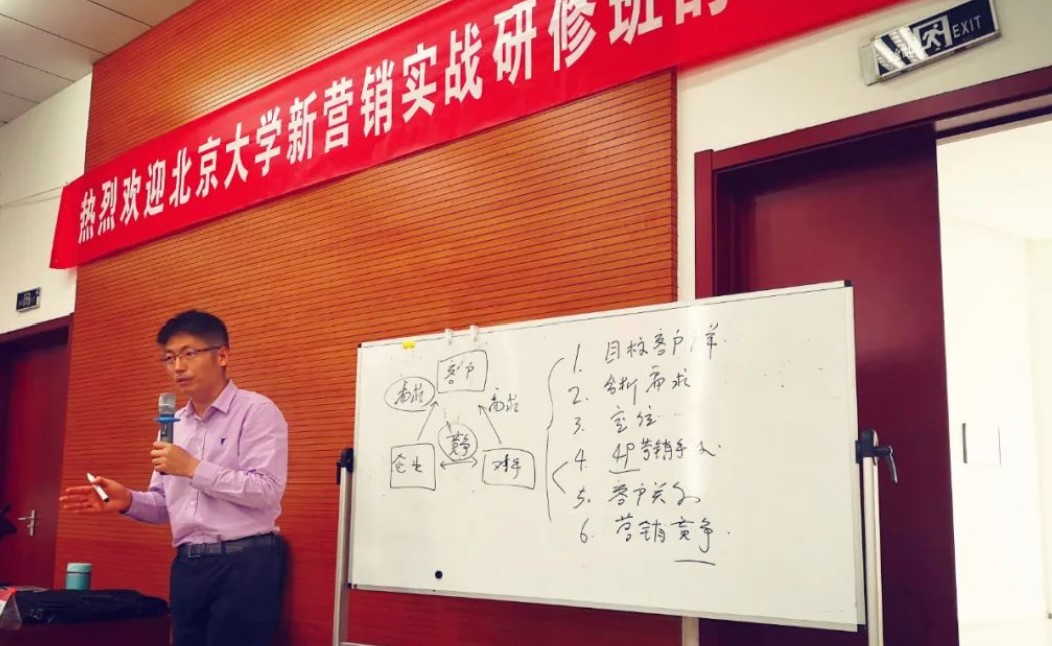 热烈欢迎北京大学新营销实战研修班的
EXIT
客户
需求
需求
竞争
企业
对手
1. 目标客户群
2. 分析需求
3. 定位
4. 4P营销手
5. 客户关
6. 营销竞争.